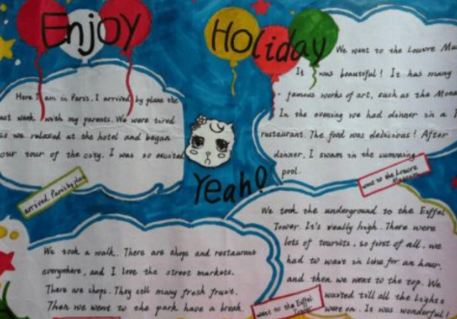 Enjoy Holiday
Here I am in Paris. I arrived by plane the
last week with my parents. We were tired
so we relaxed at the hotel and began
our tour of the city. I was so excited
arrived Paris by plane
We went to the Louvre
It was beautiful! It has many
famous works of art, such as the Mona
In the evening we had dinner in a
restaurant. The food was delicious! After
dinner, I swam in the swimming
pool.
Yeah!
went to the Louvre
We took a walk. There are shops and restaurants
everywhere, and I love the street markets.
There are shops. They sell many fresh fruit.
Then we went to the park have a break
We took the underground to the Eiffel
Tower. It's really high. There were
lots of tourists, so first of all, we
had to wait in line for an hour,
and then we went to the top. We
waited till all the lights
were on. It was wonderful!
went to the Eiffel
Tower